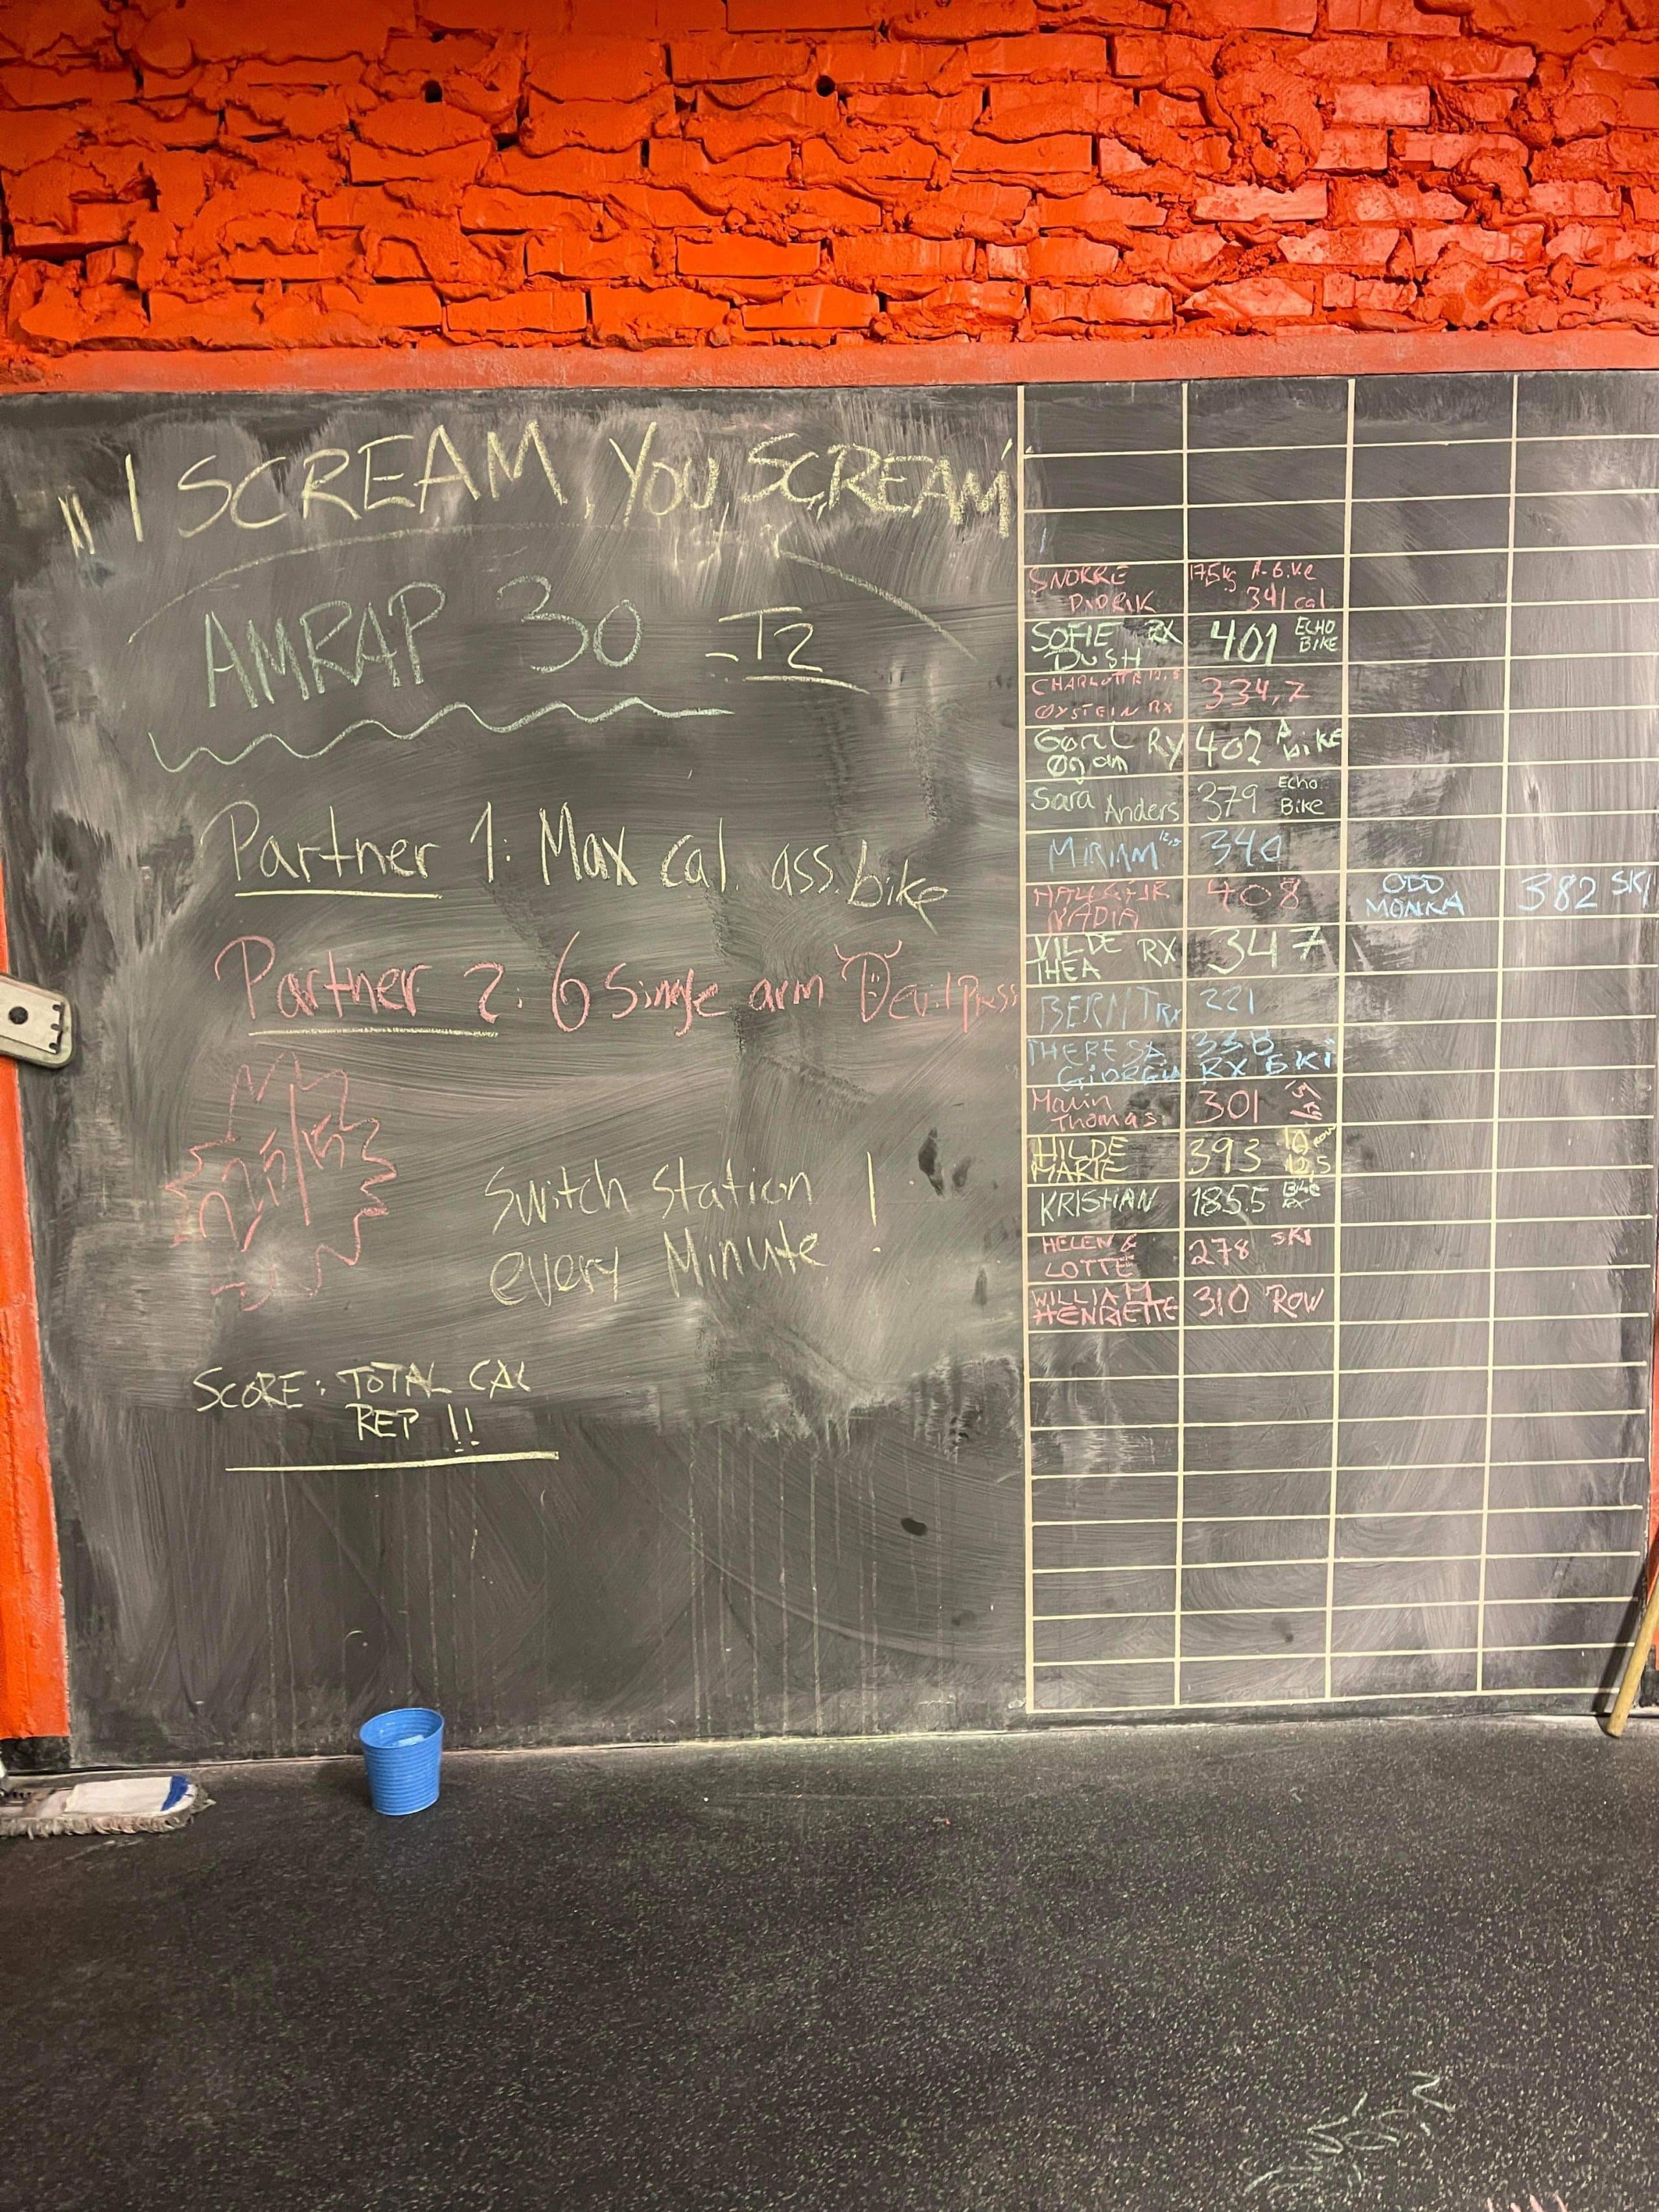 "I SCREAM, YOU SCREAM"
AMRAP 30 - T2
Partner 1: Max cal. ass. bike
Partner 2: 6 Single arm Devil Press
22,5/15
Switch Station
every Minute !
SCORE: TOTAL CAL
REP !!
SNORRE 17,5kg A-Bike
DIDRIK 341 cal
SOFIE RX 401 ECHO
BIKE
CHARLOTTE 12,5 334,7
ØYSTEIN RX
402 A
bike
Sara Anders 379 Echo
Bike
MIRIAM 12,5 340
408 ODD 382 SKI
NADIA MONKA
VILDE RX 347
THEA
BERNT RX 221
THERESA 338
GIORGIA RX SKI
Malin 301
Thomas
HILDE 393 10 row
MARIE 12,5
KRISTIAN 185.5 Bike
RX
HELEN & 278 SKI
LOTTE
WILLIAM 310 ROW
HENRIETTE